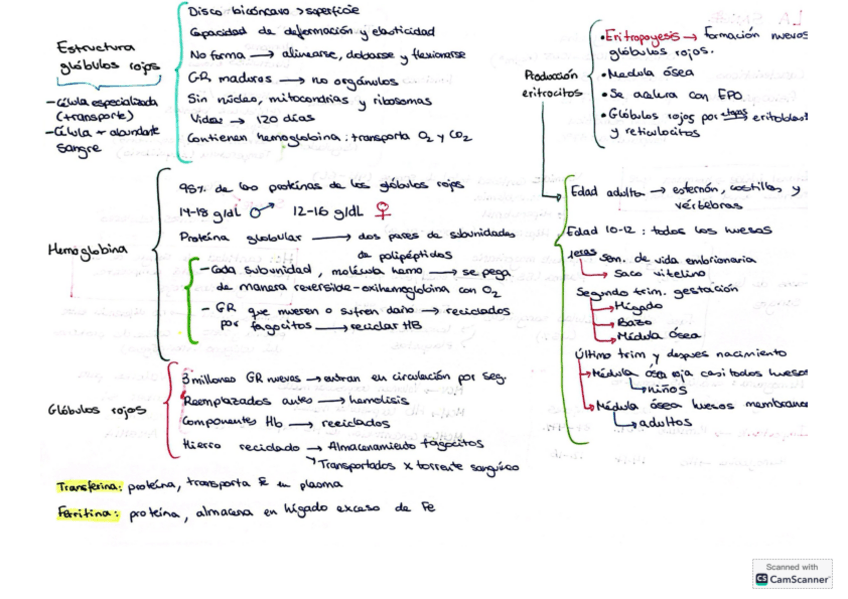 Estructura
glóbulos rojos
-Célula especializada
(transporte)
-Célula + abundante
sangre
Disco bicóncavo > superficie
Capacidad de deformación y elasticidad
No forma → alinearse, doblarse y flexionarse
GR maduros → no orgánulos
Sin núcleo, mitocondrias y ribosomas
Vida → 120 días
Contienen hemoglobina : transporta O2 y CO2
Hemoglobina
98% de las proteínas de los glóbulos rojos
14-18 g/dL ♂ 12-16 g/dL ♀
Proteína globular → dos pares de subunidades
de polipéptidos
- Cada subunidad, molécula hemo → se pega
de manera reversible - oxihemoglobina con O2
- GR que mueren o sufren daño → reciclados
por fagocitos → reciclar HB
Glóbulos rojos
3 millones GR nuevos → entran en circulación por seg.
Reemplazados antes → hemólisis
Componentes Hb → reciclados
Hierro reciclado → Almacenamiento fagocitos
Transportados x torrente sanguíneo
Transferina: proteína, transporta Fe en plasma
Ferritina: proteína, almacena en hígado exceso de Fe
Producción
eritrocitos
•Eritropoyesis → formación nuevos
glóbulos rojos.
•Medula ósea
•Se acelera con EPO
•Glóbulos rojos por etapas →
y reticulocitos
Edad adulta → esternón, costillas y
vértebras
Edad 10-12 : todos los huesos
1eras sem. de vida embrionaria
→ Saco vitelino
Segundo trim. gestación
→ Hígado
→ Bazo
→ Médula ósea
Último trim y despues nacimiento
→ Médula ósea roja casi todos huesos
→ niños
→ Médula ósea huesos
→ adultos
Scanned with
CS CamScanner